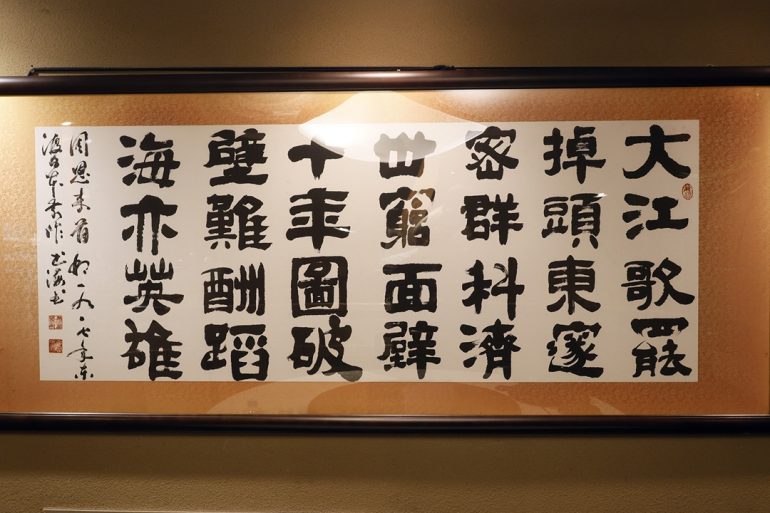 大江歌罷
掉頭東邃
密群科濟
世窮面壁
十年圖破
壁難酬蹈
海亦英雄
周恩来首相一九一七年東
渡日本 作 海书